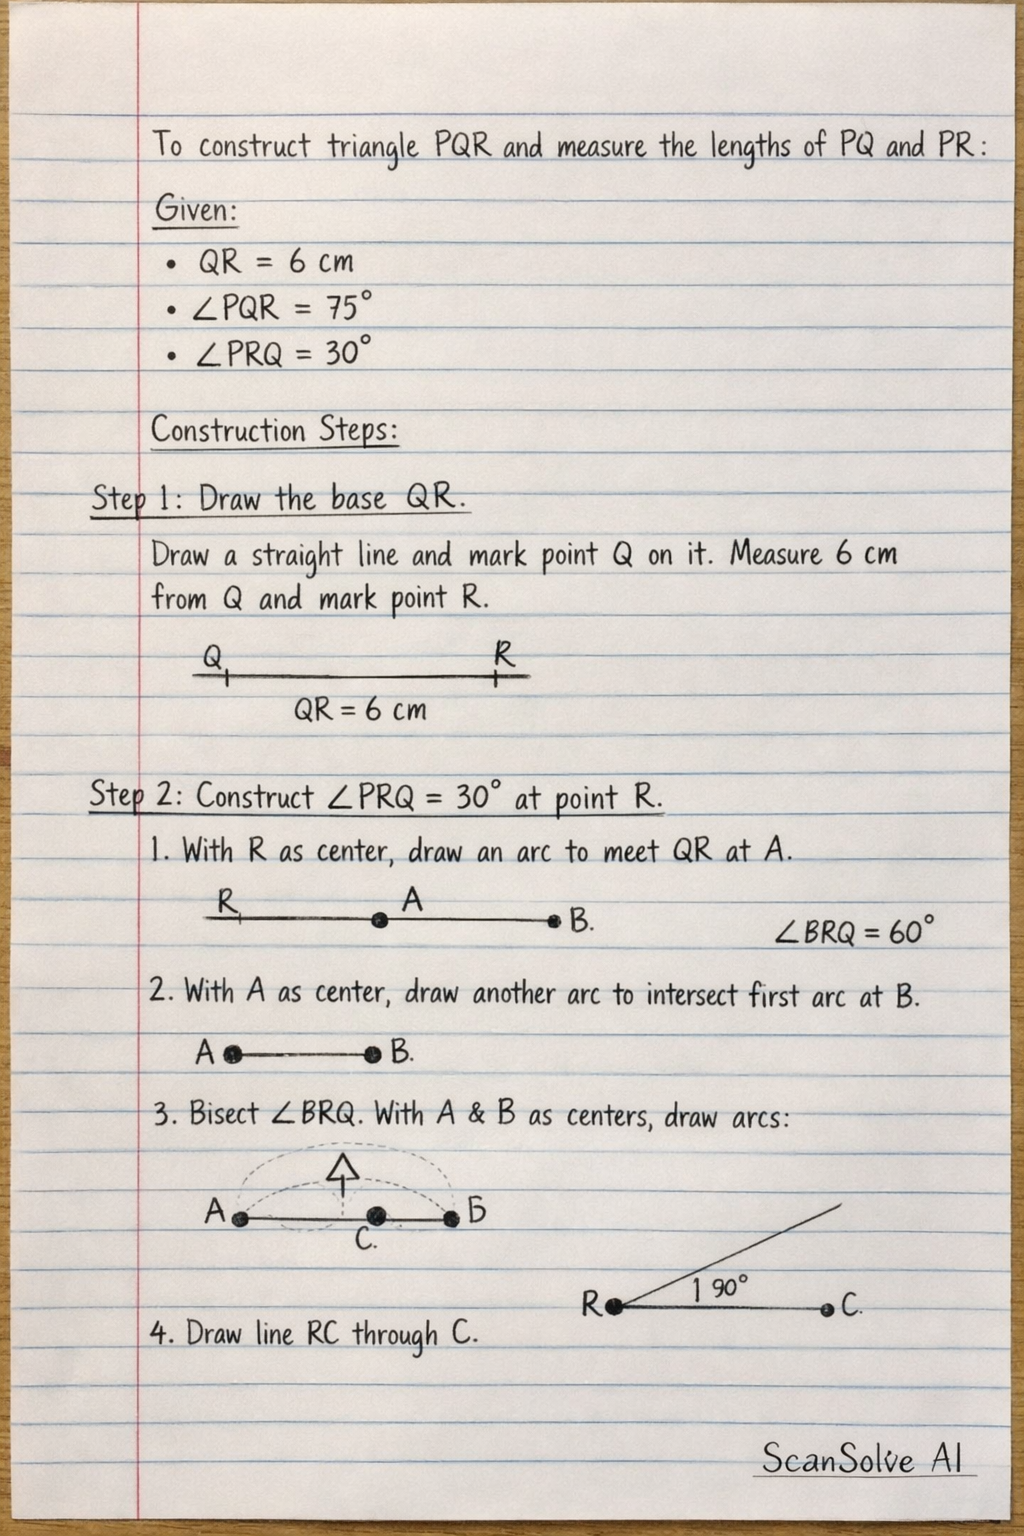 To construct triangle PQR and measure the lengths of PQ and PR:
Given:
• QR = 6 cm
• ∠PQR = 75°
• ∠PRQ = 30°
Construction Steps:
Step 1: Draw the base QR.
Draw a straight line and mark point Q on it. Measure 6 cm
from Q and mark point R.
Q R
QR = 6 cm
Step 2: Construct ∠PRQ = 30° at point R.
1. With R as center, draw an arc to meet QR at A.
R A B.
∠BRQ = 60°
2. With A as center, draw another arc to intersect first arc at B.
A B.
3. Bisect ∠BRQ. With A & B as centers, draw arcs:
A C. B
R 90° C.
4. Draw line RC through C.
ScanSolve AI